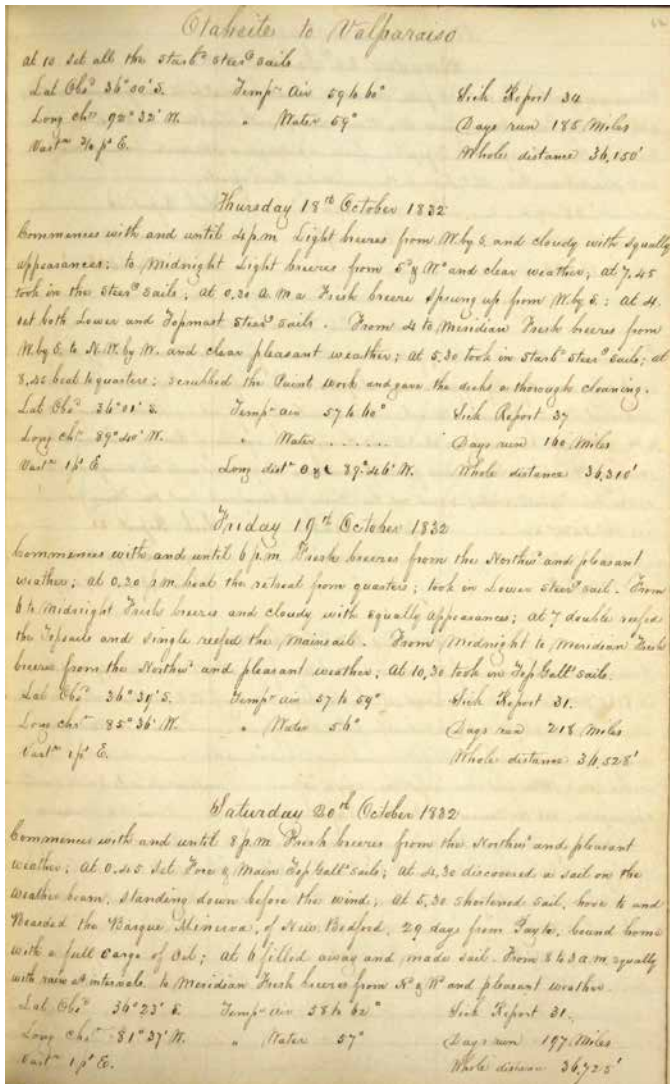 Otaheite to Valparaiso
at 10 set all the Starbd Steerg sails
Lat Obsd 36°00' S. Tempr air 59 to 60° Sick Report 34
Long chr 92°32' W. " Water 59° Days run 185 Miles
Varn ¾ pt E. Whole distance 36,150'
Thursday 18th October 1832
Commences with and until 4 p.m. Light breezes from W. by S. and cloudy with squally
appearances; to Midnight Light breezes from Sd & Wd and clear weather; at 7.45
took in the Steerg sails; at 0.20 A.M. a Fresh breeze sprung up from W. by S: at 4.
set both Lower and Topmast Steerg sails. From 4 to Meridian Fresh breezes from
W. by S. to N.W. by W. and clear pleasant weather; at 5,30 took in Starbd Steerg sails; at
8,45 beat to quarters; scrubbed the Paint work and gave the decks a thorough cleaning.
Lat Obsd 36°01' S. Tempr air 57 to 60° Sick Report 37
Long chr 89°40' W. " Water . . . . . . Days run 160 Miles
Varn 1 pt E Long distn 89°46' W. Whole distance 36,310'
Friday 19th October 1832
Commences with and until 6 p.m. Fresh breezes from the Northwd and pleasant
weather; at 0.20 p.m. beat the retreat from quarters; took in Lower Steerg sail. From
6 to Midnight Fresh breezes and cloudy with squally appearances; at 7 double reefed
the Topsails and single reefed the Mainsail. From Midnight to Meridian Fresh
breezes from the Northwd and pleasant weather; At 10,30 took in Top Gallt sails.
Lat Obsd 36°39' S. Tempr air 57 to 59° Sick Report 31.
Long chr 85°36' W. " Water 56° Days run 218 Miles
Varn 1 pt E. Whole distance 36,528'
Saturday 20th October 1832
Commences with and until 8 p.m. Fresh breezes from the Northwd and pleasant
weather; at 0.45 set Fore & Main Top Gallt sails; at 4,30 discovered a sail on the
weather beam, standing down before the wind; At 5,30 shortened sail, hove to and
Boarded the Barque Minerva, of New Bedford, 29 days from Payta, bound home
with a full cargo of Oil; at 6 filled away and made sail. From 8 to 3 a.m. squally
with rain at intervals to Meridian Fresh breezes from Nd & Wd and pleasant weather.
Lat Obsd 36°23' S. Tempr air 58 to 62° Sick Report 31.
Long chr 81°37' W. " Water 57° Days run 197 Miles
Varn 1 pt E. Whole distance 36,725'